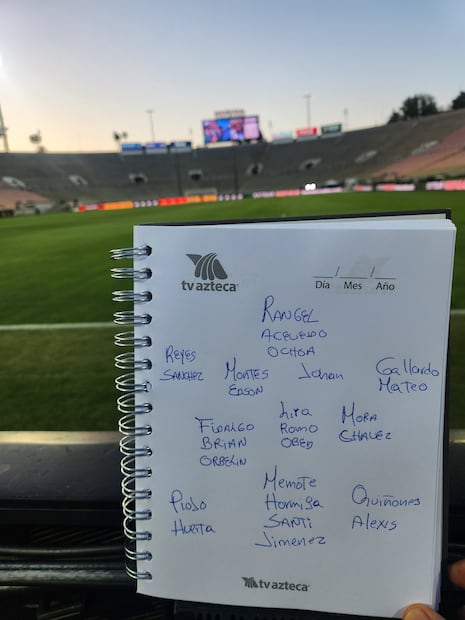 tv azteca
__/__/__
Día Mes Año
RANGEL
ACEVEDO
OCHOA
REYES
SANCHEZ
MONTES
EDSON
JOHAN
Gallardo
MATEO
FIDALGO
BRIAN
ORBELIN
Lira
ROMO
OBED
MORA
CHAVEZ
PIOJO
HUERTA
MEMOTE
HORMIGA
SANTI
JIMENEZ
QUIÑONES
ALEXIS
tv azteca